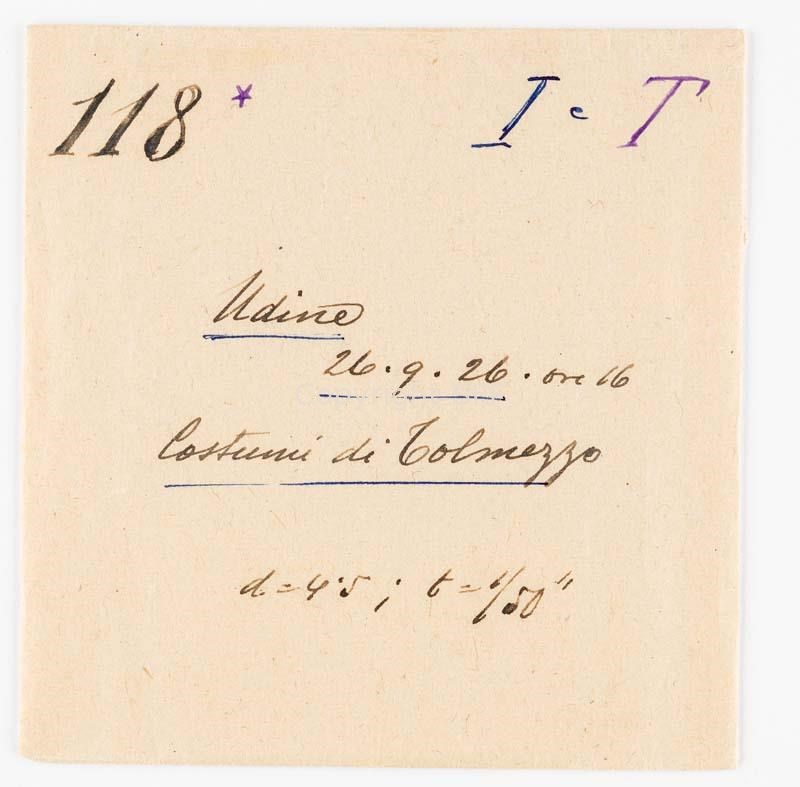 118 * I e T
Udine
26.9.26. ore 16
Costumi di Tolmezzo
d=4.5; t=1/50"